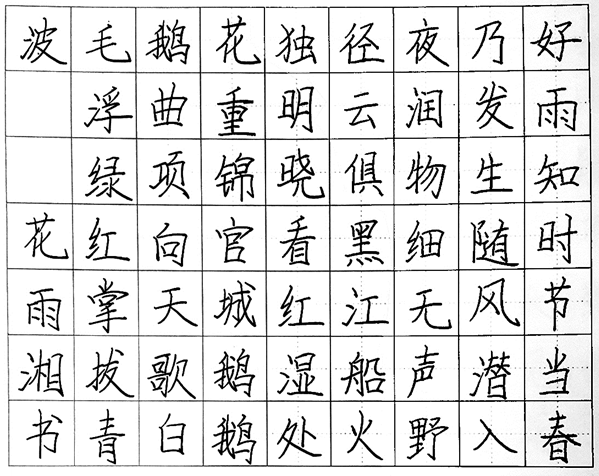 好雨知时节当春
乃发生随风潜入
夜润物细无声野
径云俱黑江船火
独明晓看红湿处
花重锦官城鹅鹅
鹅曲项向天歌白
毛浮绿红掌拔青
波花雨湘书